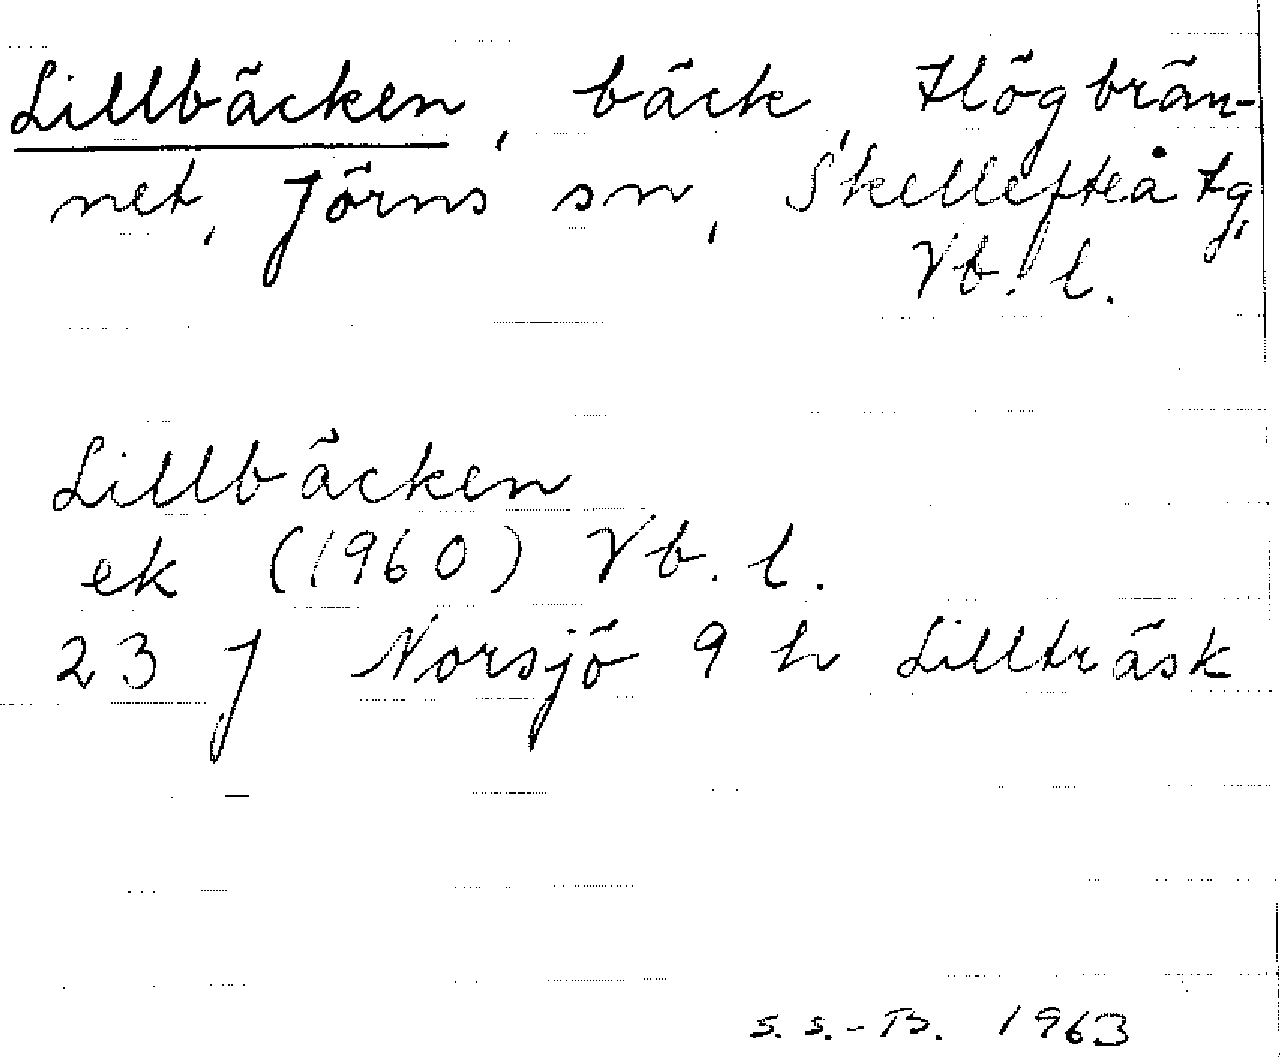 Lillbäcken, bäck, Högbrän-
net, Jörns sn, Skellefteå tg,
Vb. l.
Lillbäcken
ek (1960) Vb. l.
23 J Norsjö 9 h Lillträsk
S. S.-B. 1963